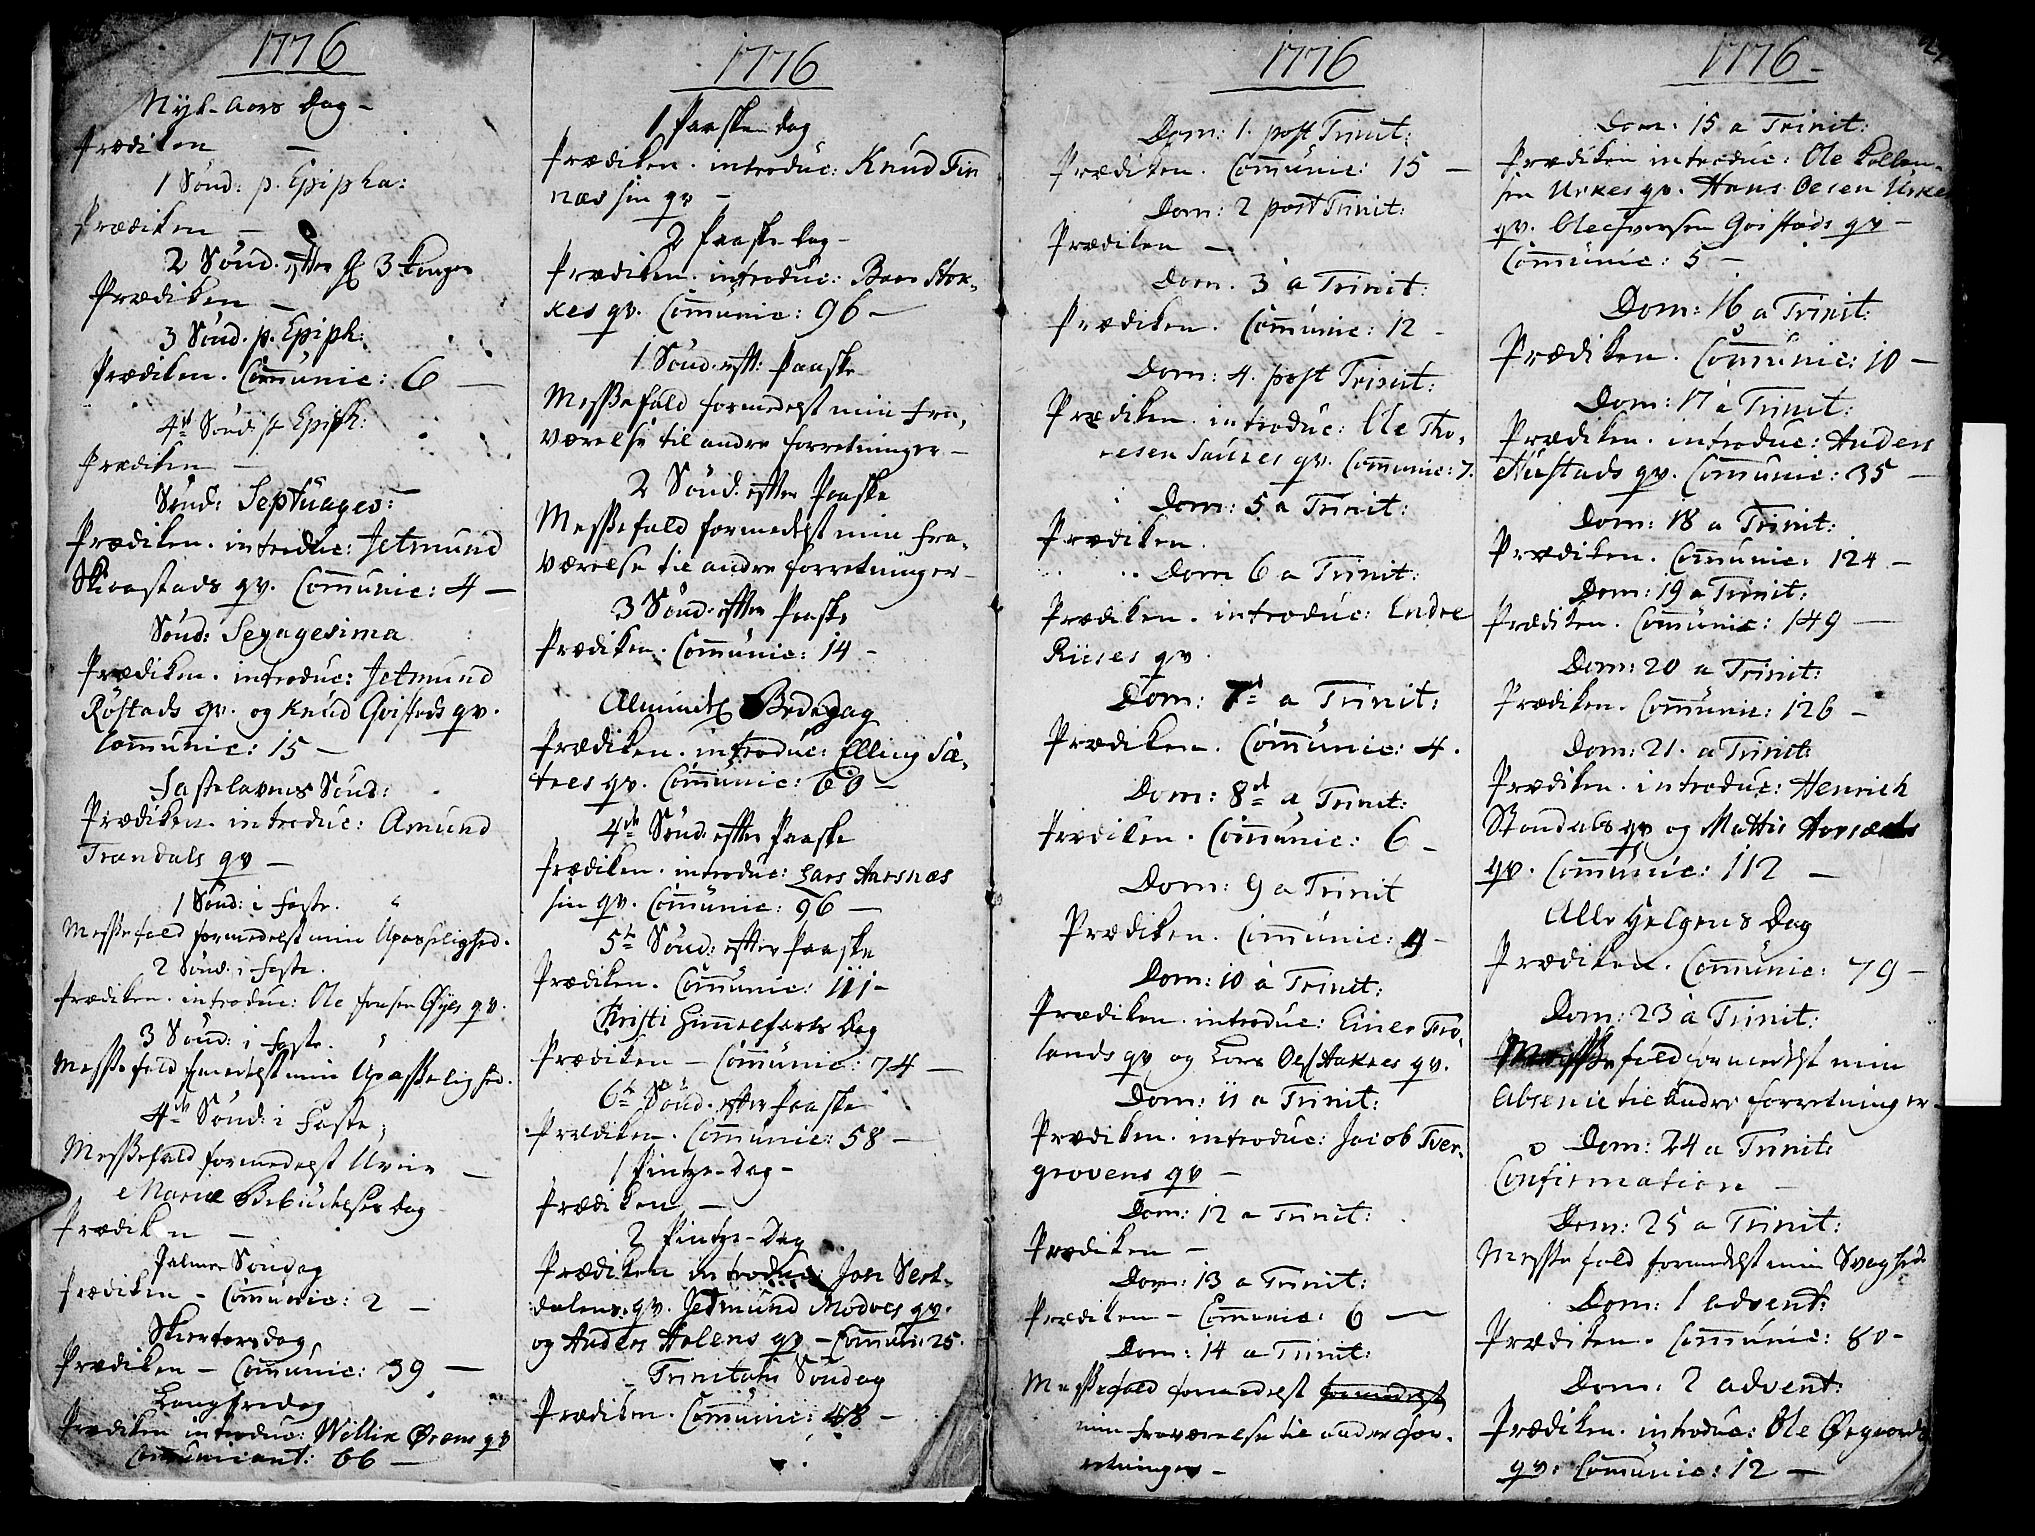 1776
Nyt-Aars Dag -
Prædiken -
1 Sönd: p. Epipha:
Prædiken -
2 Sönd. efter H 3 Konger
Prædiken -
3 Sönd. p. Epiph:
Prædiken. Communic: 6 -
4de Sönd: p Epiph:
Prædiken -
Sönd: Septuages:
Prædiken. introduc: Jetmund
Skaastads qv. Communic: 4 -
Sönd: Sexagesima
Prædiken. introduc: Jetmund
Röstads qv. og Knud Goistads qv.
Communic: 15 -
Fastelavens Sönd:
Prædiken. introduc: Amund
Trandals qv -
1 Sönd: i Faste.
Messefald formedelst min Upasselighed.
2 Sönd: i Faste.
Prædiken. introduc: Ole Øyes qv.
3 Sönd: i Faste.
Messefald formedelst min Upasselighed.
4de Sönd: i Faste.
Messefald formedelst Uveir -
Mariæ Bebudelses Dag
Prædiken -
Palme Söndag
Prædiken - Communic: 2 -
Skiertorsdag
Prædiken - Communic: 39 -
Langfredag
Prædiken introduc: Willik Ørens qv
Communicant: 66 -
1776
1 Paaske dag
Prædiken. introduc: Knud Fin
næs sin qv -
2 Paaske Dag -
Prædiken. introduc: Baar Stok-
kes qv. Communic: 96 -
1 Sönd: eft: Paaske
Messefald formedelst min fra-
værelse til andre forretninger -
2 Sönd: efter Paaske
Messefald formedelst min fra-
værelse til andre forretninger -
3 Sönd. efter Paaske
Prædiken. Communic: 14 -
Almindel Bededag
Prædiken. introduc: Elling Sæ-
tres qv. Communic: 60 -
4de Sönd. efter Paaske
Prædiken. introduc: Lars Aarsnæs
sin qv. Communic: 96 -
5te Sönd: efter Paaske
Prædiken. Communic: 111 -
Christi Himmelfarts Dag
Prædiken - Communic: 74 -
6te Sönd. efter Paaske
Prædiken. Communic: 58 -
1 Pintze-Dag -
Prædiken -
2 Pintze-Dag
Prædiken introduc: Jon Sert-
dalens qv. Jetmund Modvos qv.
og Anders Holens qv - Communi: 25.
Trinitatis Söndag
Prædiken. Communic: 48 -
1776
Dom: 1. post Trinit:
Prædiken. Communic: 15 -
Dom: 2 post Trinit:
Prædiken -
Dom. 3 a Trinit:
Prædiken. Communic: 12 -
Dom: 4. post Trinit:
Prædiken. introduc: Ole Tho-
resen Saures qv. Communic: 7.
Dom: 5 a Trinit:
Prædiken.
Dom 6 a Trinit:
Prædiken. introduc: Endre
Riises qv.
Dom: 7de a Trinit:
Prædiken. Communic: 4.
Dom: 8de a Trinit:
Prædiken. Communic: 6 -
Dom: 9 a Trinit
Prædiken. Communic: 9 -
Dom: 10 a Trinit:
Prædiken. introduc: Einer Fro-
lands qv og Lars Oels Aaknes qv.
Dom: 11 a Trinit:
Prædiken. introduc: Jacob Tver-
grovens qv -
Dom: 12 a Trinit:
Prædiken -
Dom: 13 a Trinit:
Prædiken - Communic: 6 -
Dom: 14 a Trinit:
Messefald formedelst formedelst
min fraværelse til andre for-
retninger -
1776 -
Dom: 15 a Trinit:
Prædiken introduc: Ole
sin Urkes qv. Hans Oesen Urke
qv. Ole Iversen Goistads qv -
Communic: 5 -
Dom: 16 a Trinit:
Prædiken. Communic: 10 -
Dom: 17 a Trinit:
Prædiken. introduc: Anders
Mustads qv. Communic: 35 -
Dom: 18 a Trinit:
Prædiken. Communic. 124 -
Dom: 19 a Trinit:
Prædiken. Communic: 149 -
Dom: 20 a Trinit:
Prædiken. Communic: 126 -
Dom: 21. a Trinit:
Prædiken. introduc: Henrich
Standals qv og Mattis
qv. Communic: 112 -
Alle Helgens Dag
Prædiken. Communic: 79 -
Dom: 23 a Trinit:
Messefald formedelst min
Absence til andre forretninger -
Dom: 24 a Trinit:
Confirmation -
Dom: 25 a Trinit:
Messefald formedelst min Svaghed
Dom: 1 advent:
Prædiken. Communic: 80 -
Dom: 2 advent:
Prædiken. introduc: Ole
qv: Communic: 12 -